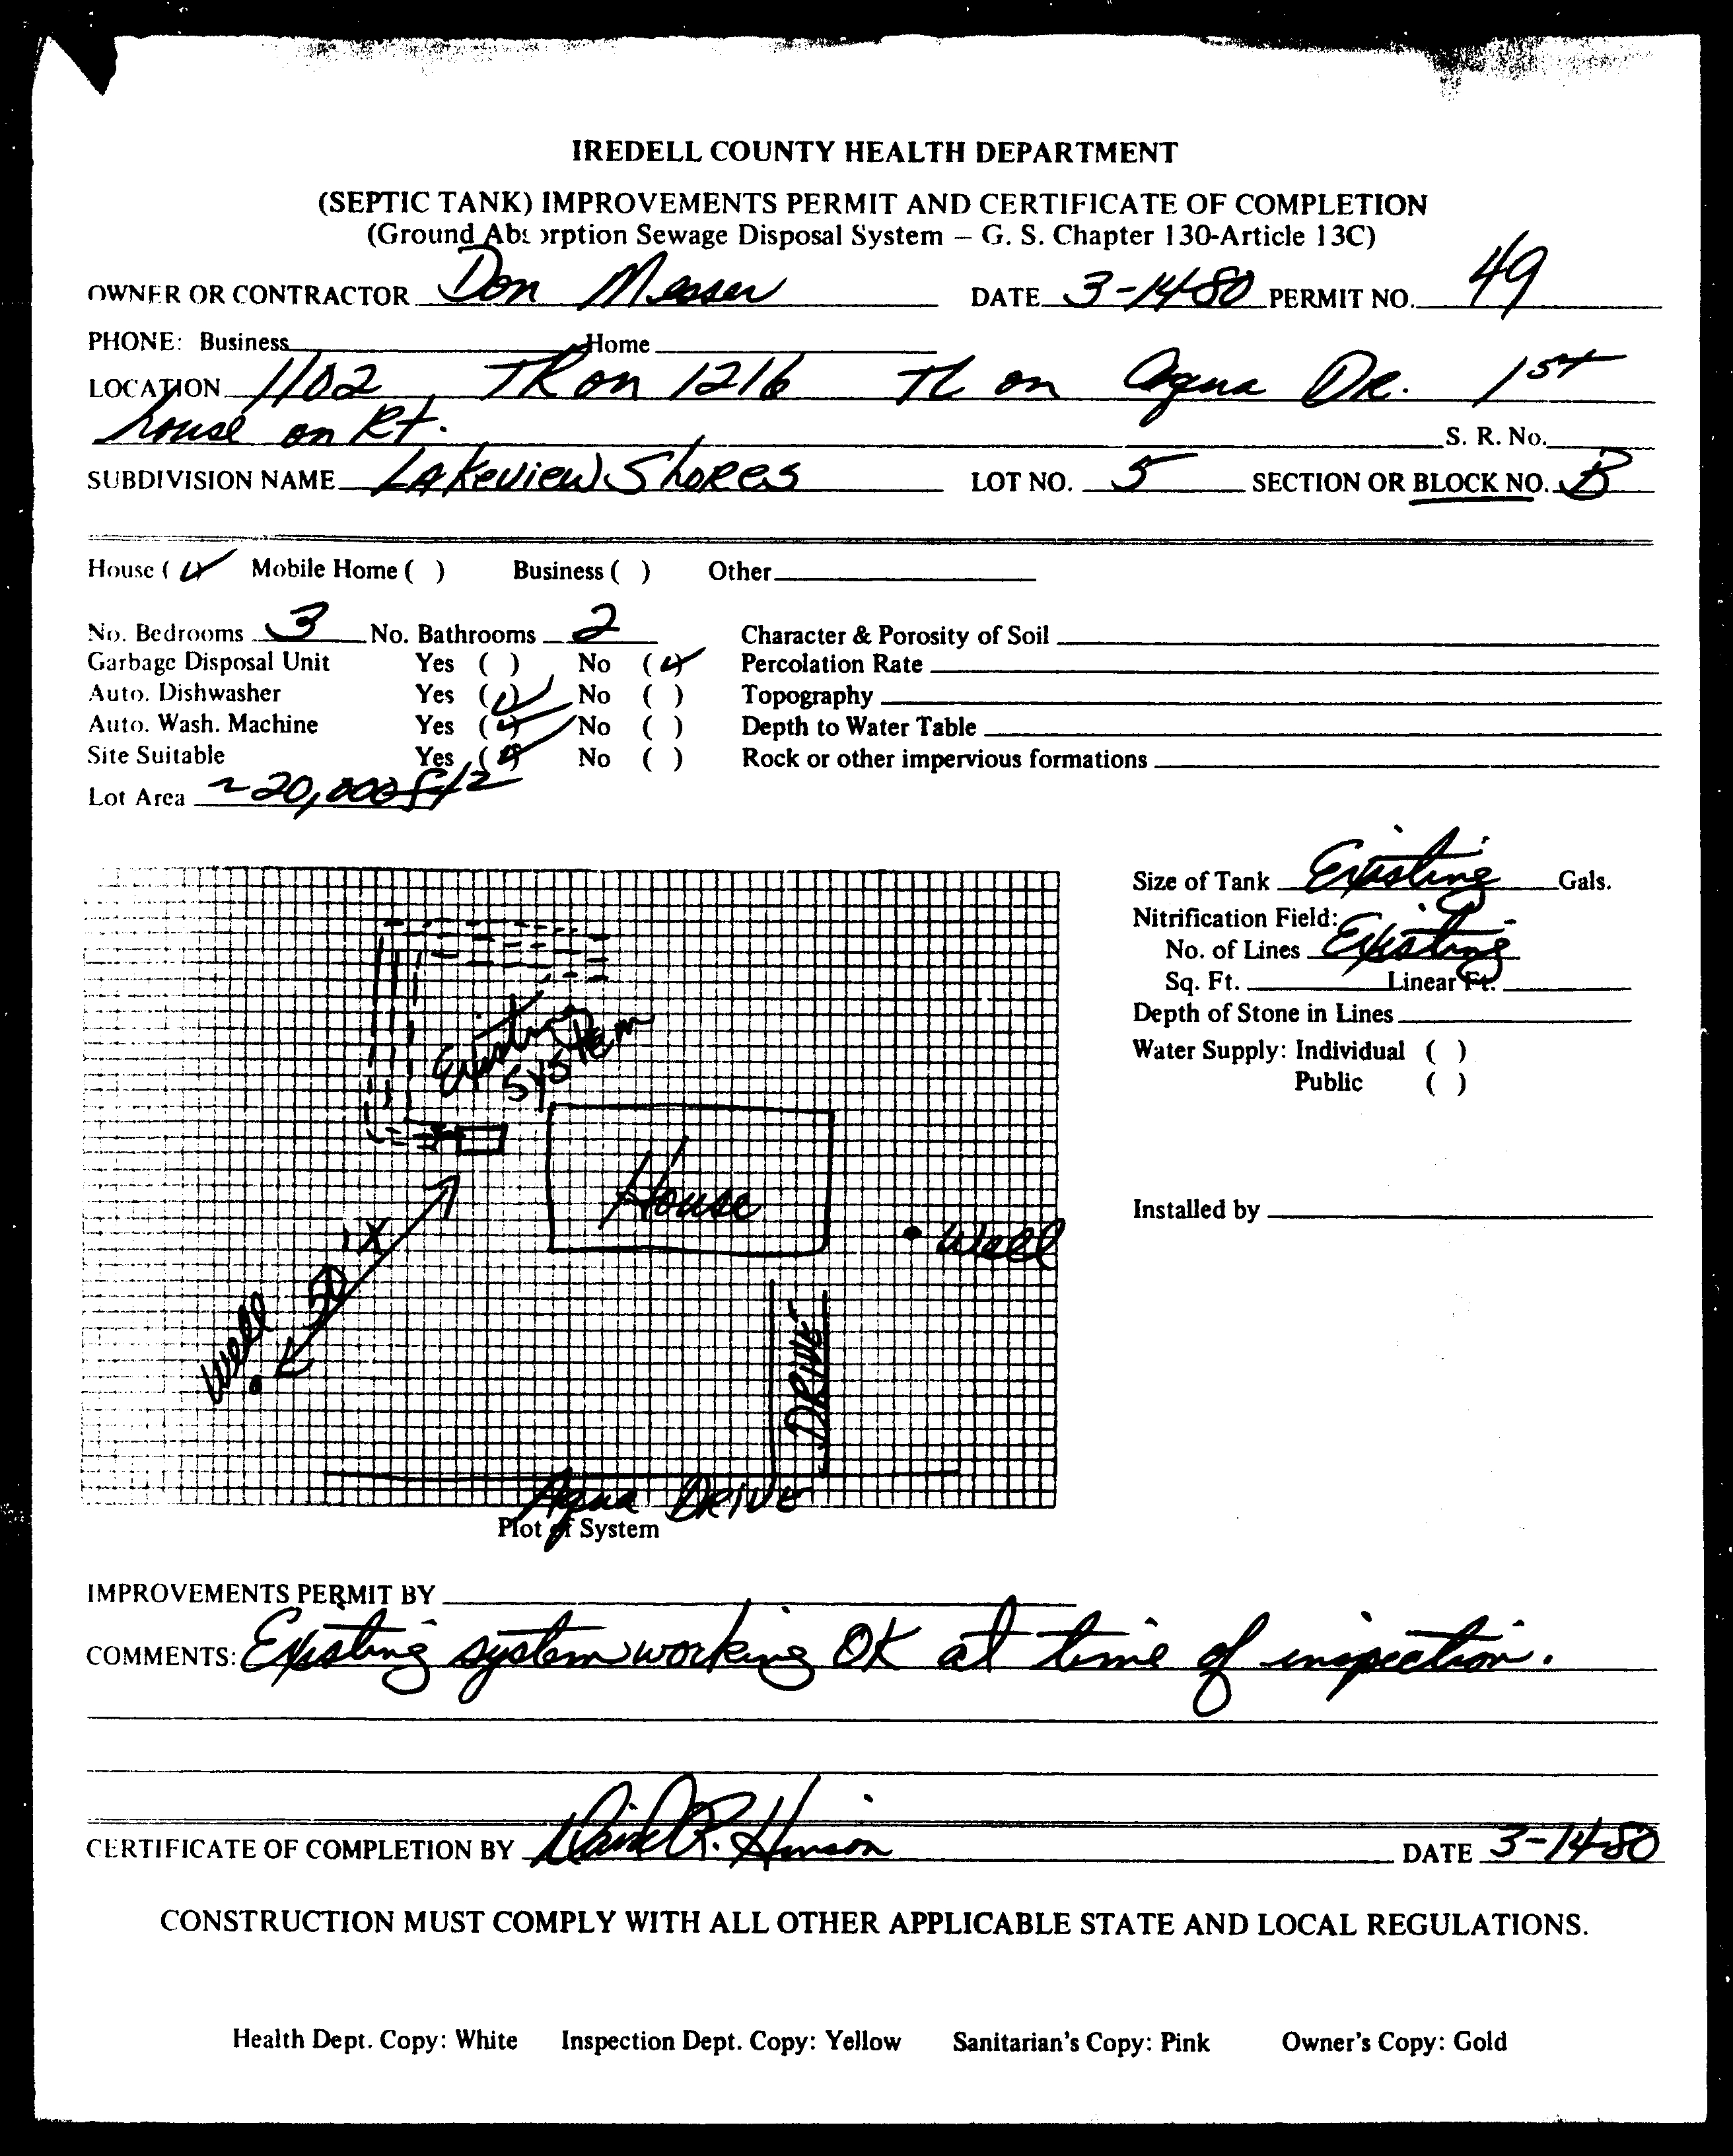 IREDELL COUNTY HEALTH DEPARTMENT
(SEPTIC TANK) IMPROVEMENTS PERMIT AND CERTIFICATE OF COMPLETION
(Ground Absorption Sewage Disposal System – G. S. Chapter 130-Article 13C)
OWNER OR CONTRACTOR Don Messer DATE 3-14-80 PERMIT NO. 49
PHONE: Business Home
LOCATION 1102 TR on 1216 TL on Aqua DR. 1st
house on Rt. S. R. No.
SUBDIVISION NAME LAKeview ShoRes LOT NO. 5 SECTION OR BLOCK NO. B
House (✓) Mobile Home ( ) Business ( ) Other
No. Bedrooms 3 No. Bathrooms 2 Character & Porosity of Soil
Garbage Disposal Unit Yes ( ) No (✓) Percolation Rate
Auto. Dishwasher Yes (✓) No ( ) Topography
Auto. Wash. Machine Yes (✓) No ( ) Depth to Water Table
Site Suitable Yes (✓) No ( ) Rock or other impervious formations
Lot Area ~20,000 ft2
Size of Tank Existing Gals.
Nitrification Field:
No. of Lines Existing
Sq. Ft. Linear Ft.
Depth of Stone in Lines
Water Supply: Individual ( )
Public ( )
Installed by
Existing
System
House
Well
50
Well
DRIVE
Aqua DRIVE
Plot of System
IMPROVEMENTS PERMIT BY
COMMENTS: Existing system working OK at time of inspection.
CERTIFICATE OF COMPLETION BY David R. Hinson DATE 3-14-80
CONSTRUCTION MUST COMPLY WITH ALL OTHER APPLICABLE STATE AND LOCAL REGULATIONS.
Health Dept. Copy: White Inspection Dept. Copy: Yellow Sanitarian's Copy: Pink Owner's Copy: Gold